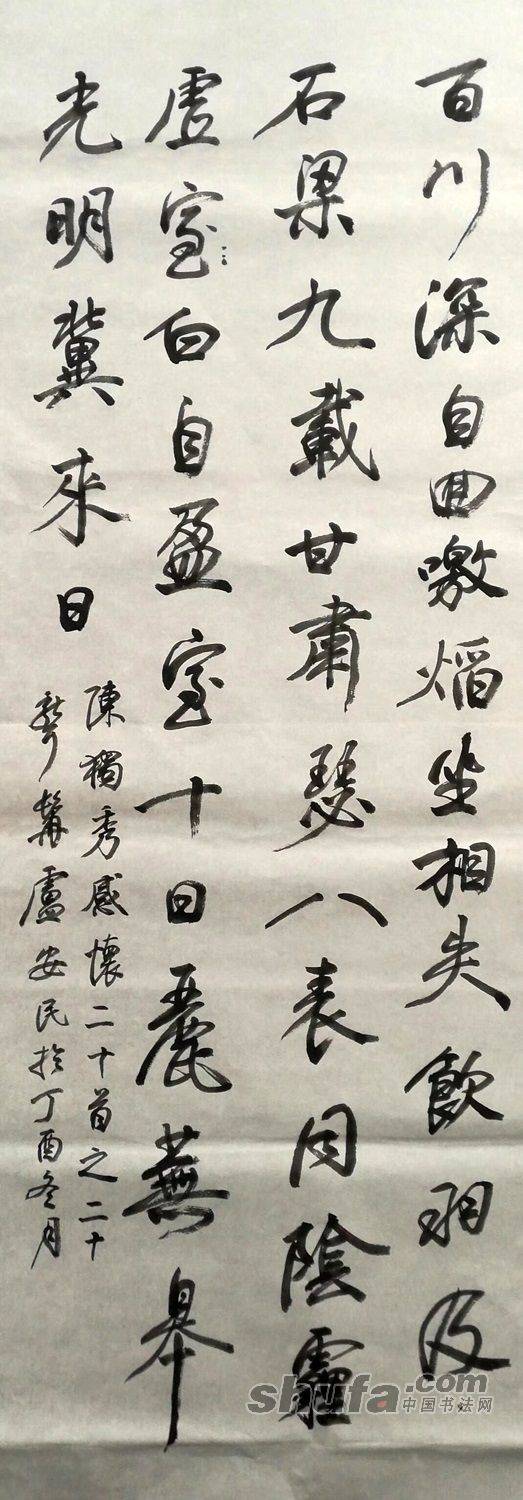 百川深自回嗷焰坐相失飲羽及
石梁九載甘肅瑟八表同陰霾
虛室白自盈室十日麗蕪皋
光明冀來日
陳獨秀感懷二十首之二十
盧安民於丁酉冬月
shufa.com
中国书法网